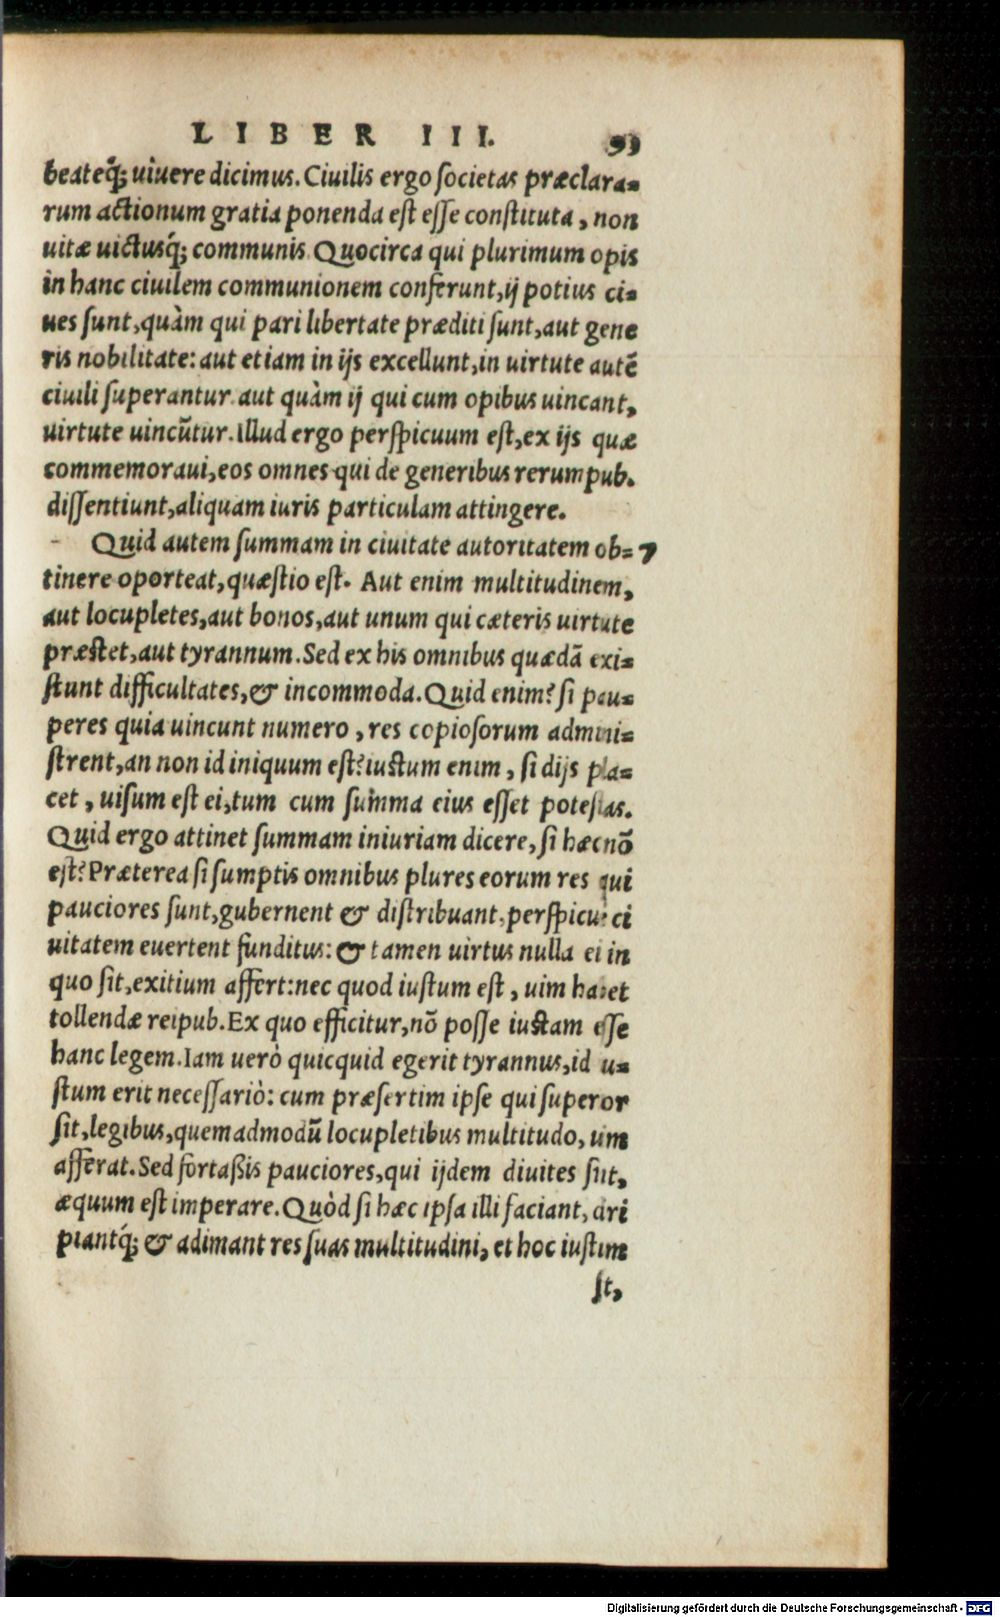 LIBER III. 93
beateq́; uiuere dicimus. Ciuilis ergo societas præclara=
rum actionum gratia ponenda est esse constituta, non
uitæ uictusq́; communis. Quocirca qui plurimum opis
in hanc ciuilem communionem conferunt, ij potius ci=
ues sunt, quàm qui pari libertate præditi sunt, aut gene
ris nobilitate: aut etiam in ijs excellunt, in uirtute autē
ciuili superantur. aut quàm ij qui cum opibus uincant,
uirtute uincūtur. illud ergo perspicuum est, ex ijs quæ
commemoraui, eos omnes qui de generibus rerumpub.
dissentiunt, aliquam iuris particulam attingere.
Quid autem summam in ciuitate autoritatem ob= 7
tinere oporteat, quæstio est. Aut enim multitudinem,
aut locupletes, aut bonos, aut unum qui cæteris uirtute
præstet, aut tyrannum. Sed ex his omnibus quædā exi=
stunt difficultates, & incommoda. Quid enim? si pau=
peres quia uincunt numero, res copiosorum admini=
strent, an non id iniquum est? iustum enim, si dijs pla=
cet, uisum est ei, tum cum summa eius esset potestas.
Quid ergo attinet summam iniuriam dicere, si hæc nō
est? Præterea si sumptis omnibus plures eorum res qui
pauciores sunt, gubernent & distribuant, perspicuè ci
uitatem euertent funditus: & tamen uirtus nulla ei in
quo sit, exitium affert: nec quod iustum est, uim habet
tollendæ reipub. Ex quo efficitur, nō posse iustam esse
hanc legem. Iam uerò quicquid egerit tyrannus, id iu=
stum erit necessariò: cum præsertim ipse qui superor
sit, legibus, quemadmodū locupletibus multitudo, uim
afferat. Sed fortaßis pauciores, qui ijdem diuites sūt,
æquum est imperare. Quòd si hæc ipsa illi faciant, diri
piantq́; & adimant res suas multitudini, et hoc iustum
sit,
Digitalisierung gefördert durch die Deutsche Forschungsgemeinschaft - DFG